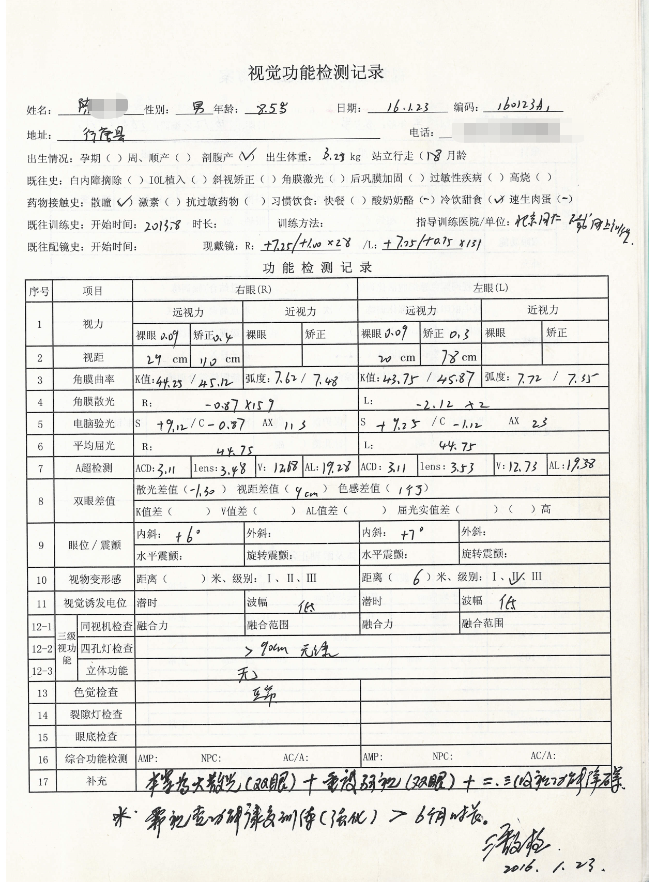 视觉功能检测记录
姓名: 陈 性别: 男 年龄: 8.5岁 日期: 16.1.23 编码: 160123A1
地址: 行唐县 电话:
出生情况: 孕期( )周、顺产( ) 剖腹产(✓) 出生体重: 3.25 kg 站立行走( 18 月龄
既往史: 白内障摘除( ) IOL植入( ) 斜视矫正( ) 角膜激光( ) 后巩膜加固( ) 过敏性疾病( ) 高烧( )
药物接触史: 散瞳(✓ 激素( ) 抗过敏药物( ) 习惯饮食: 快餐( ) 酸奶奶酪(-) 冷饮甜食(✓) 速生肉蛋(-)
既往训练史: 开始时间: 2013.8 时长: 训练方法: 指导训练医院/单位: 北京同仁
既往配镜史: 开始时间: 现戴镜: R: +7.25/+1.00×28 /L: +7.25/+0.75×131
功能检测记录
序号 项目 右眼(R) 左眼(L)
1 视力 远视力 近视力 远视力 近视力
裸眼 0.09 矫正 0.4 裸眼 矫正 裸眼 0.09 矫正 0.3 裸眼 矫正
2 视距 29 cm 110 cm 20 cm 78 cm
3 角膜曲率 K值: 44.25 / 45.12 弧度: 7.62 / 7.48 K值: 43.75 / 45.87 弧度: 7.72 / 7.35
4 角膜散光 R: -0.87×159 L: -2.12×2
5 电脑验光 S +9.12 /C -0.87 AX 113 S +9.25 /C -1.12 AX 23
6 平均屈光 R: 44.75 L: 44.75
7 A超检测 ACD: 3.11 lens: 3.48 V: 12.68 AL: 19.28 ACD: 3.11 lens: 3.53 V: 12.73 AL: 19.38
8 双眼差值 散光差值(-1.30) 视距差值(9cm) 色感差值(1个)
K值差( ) V值差( ) AL值差( ) 屈光实值差( ) ( )高
9 眼位/震颤 内斜: +6° 外斜: 内斜: +7° 外斜:
水平震颤: 旋转震颤: 水平震颤: 旋转震颤:
10 视物变形感 距离( )米、级别: I、II、III 距离( 6 )米、级别: I、II、III
11 视觉诱发电位 潜时 波幅 低 潜时 波幅 低
三级视功能
12-1 同视机检查 融合力 融合范围 融合力 融合范围
12-2 四孔灯检查 > 90cm 无
12-3 立体功能 无
13 色觉检查 正常
14 裂隙灯检查
15 眼底检查
16 综合功能检测 AMP: NPC: AC/A: AMP: NPC: AC/A:
17 补充 散光(双眼) + 重度弱视(双眼) + 二.三级视功能障碍
※ 训练(强化) > 6个月时长。
2016.1.23.